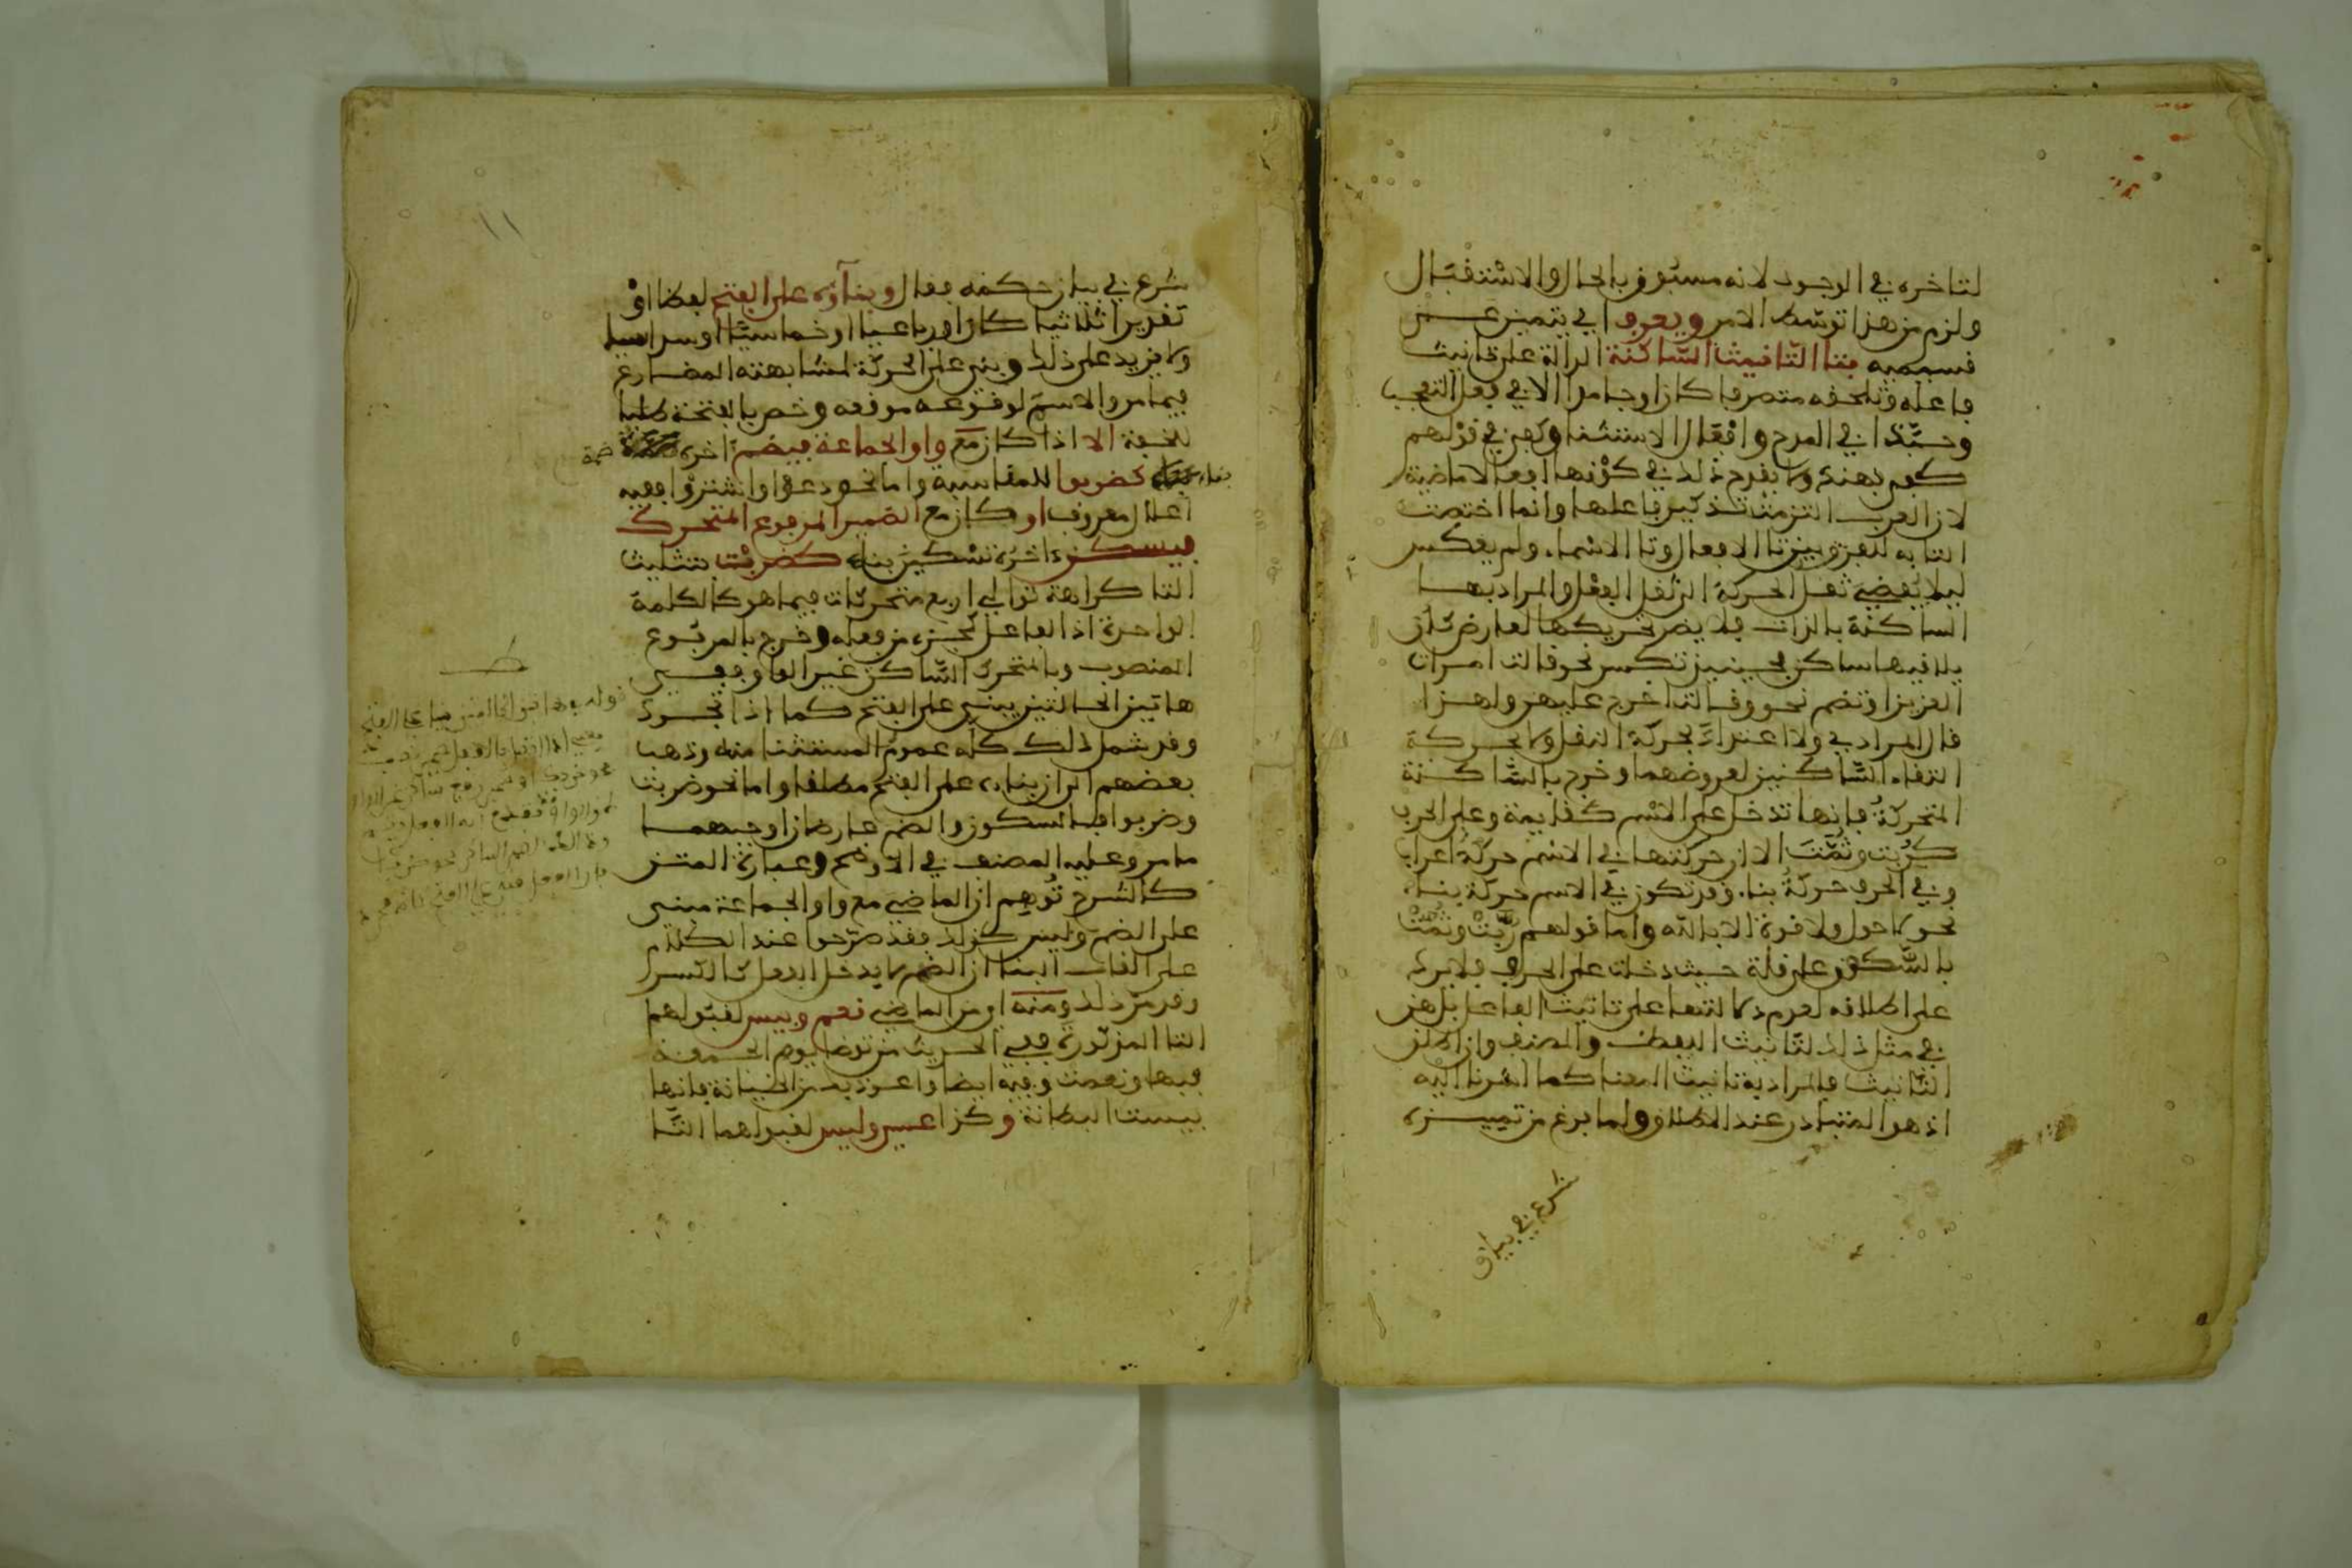 لتاخره في الوجود لانه مسبوق بالحال والاستقبال
ولزم من هذا توسط الامر ويعرف اي يتميز عن
قسيميه بتا التانيث الساكنة الدالة على تانيث
فاعله وتلحقه متصرفا كان او جامدا الا في فعل التعجب
وحبذا في المدح وافعال الاستثنا وكفى في قولهم
كفى بهند ولا يقدح ذلك في كونها افعالا ماضية
لان العرب التزمت تذكير فاعلها وانما اختصت
التا به للفرق بين تا الافعال وتا الاسماء ولم يعكس
ليلا يفضي ثقل الحركة الى ثقل الفعل والمراد بها
الساكنة بالذات فلا يضر تحريكها لعارض كان
يلاقيها ساكن فحينيذ تكسر نحو قالت امرات
العزيز او تضم نحو وقالت اخرج عليهن ولهذا
قال المرادي ولا اعتداد بحركة النقل ولا بحركة
التقاء الساكنين لعروضهما وخرج بالساكنة
المتحركة فانها تدخل على الاسم كقايمة وعلى الحرف
كربت وثمت الا ان حركتها في الاسم حركة اعراب
وفي الحرف حركة بناء وقد تكون في الاسم حركة بناء
نحو لا حول ولا قوة الا بالله واما قولهم ربت وثمت
بالسكون على قلة حيث دخلت على الحرف فلا يرد
على اطلاقه لعدم دلالتها على تانيث الفاعل بل هي
في مثل ذلك لتانيث اللفظ والمصنف وان اطلق
التانيث فالمراد به تانيث المعنا كما اشرنا اليه
اذ هو المتبادر عند الاطلاق ولما فرغ من تمييزه
شرع في بيان
١١
شرع في بيان حكمه فقال وبناؤه على الفتح لفظا او
تقديرا ثلاثيا كان او رباعيا او خماسيا او سداسيا
ولا يزيد على ذلك وبني على الحركة لمشابهته المضارع
فيما مر والاسم لوقوعه موقعه وخص بالفتحة طلبا
للخفة الا اذا كان مع واو الجماعة فيضم اخره ضمة
بناء كضربوا للمناسبة واما نحو دعوا واشتروا ففيه
اعلال معروف او كان مع الضمير المرفوع المتحرك
فيسكن اخره تسكين بناء كضربت بتثليث
التا كراهة توالي اربع متحركات فيما هو كالكلمة
الواحدة اذ الفاعل كجزء من فعله وخرج بالمرفوع
المنصوب وبالمتحرك الساكن غير الواو ففي
هاتين الحالتين يبنى على الفتح كما اذا تجرد
وقد شمل ذلك كله عموم المستثنا منه وذهب
بعضهم الى ان بناءه على الفتح مطلقا واما نحو ضربت
وضربوا فالسكون والضم عارضان اوجبهما
ما مر وعليه المصنف في الاوضح وعبارة المتن
كالشرح توهم ان الماضي مع واو الجماعة مبني
على الضم وليس كذلك فقد صرحوا عند الكلام
على القاب البنا ان الضم لا يدخل الفعل كالكسر
وقد مر ذلك ومنه اي من الماضي نعم وبيس لقبولهما
التا المذكورة ففي الحديث من توضا يوم الجمعة
فبها ونعمت وفيه ايضا واعوذ بك من الخيانة فانها
بيست البطانة وكذا عسى وليس لقبولهما التا